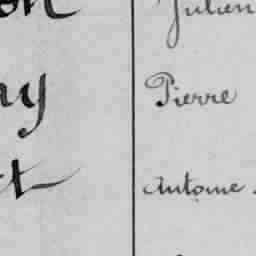 on Julien
ny Pierre
et Antoine